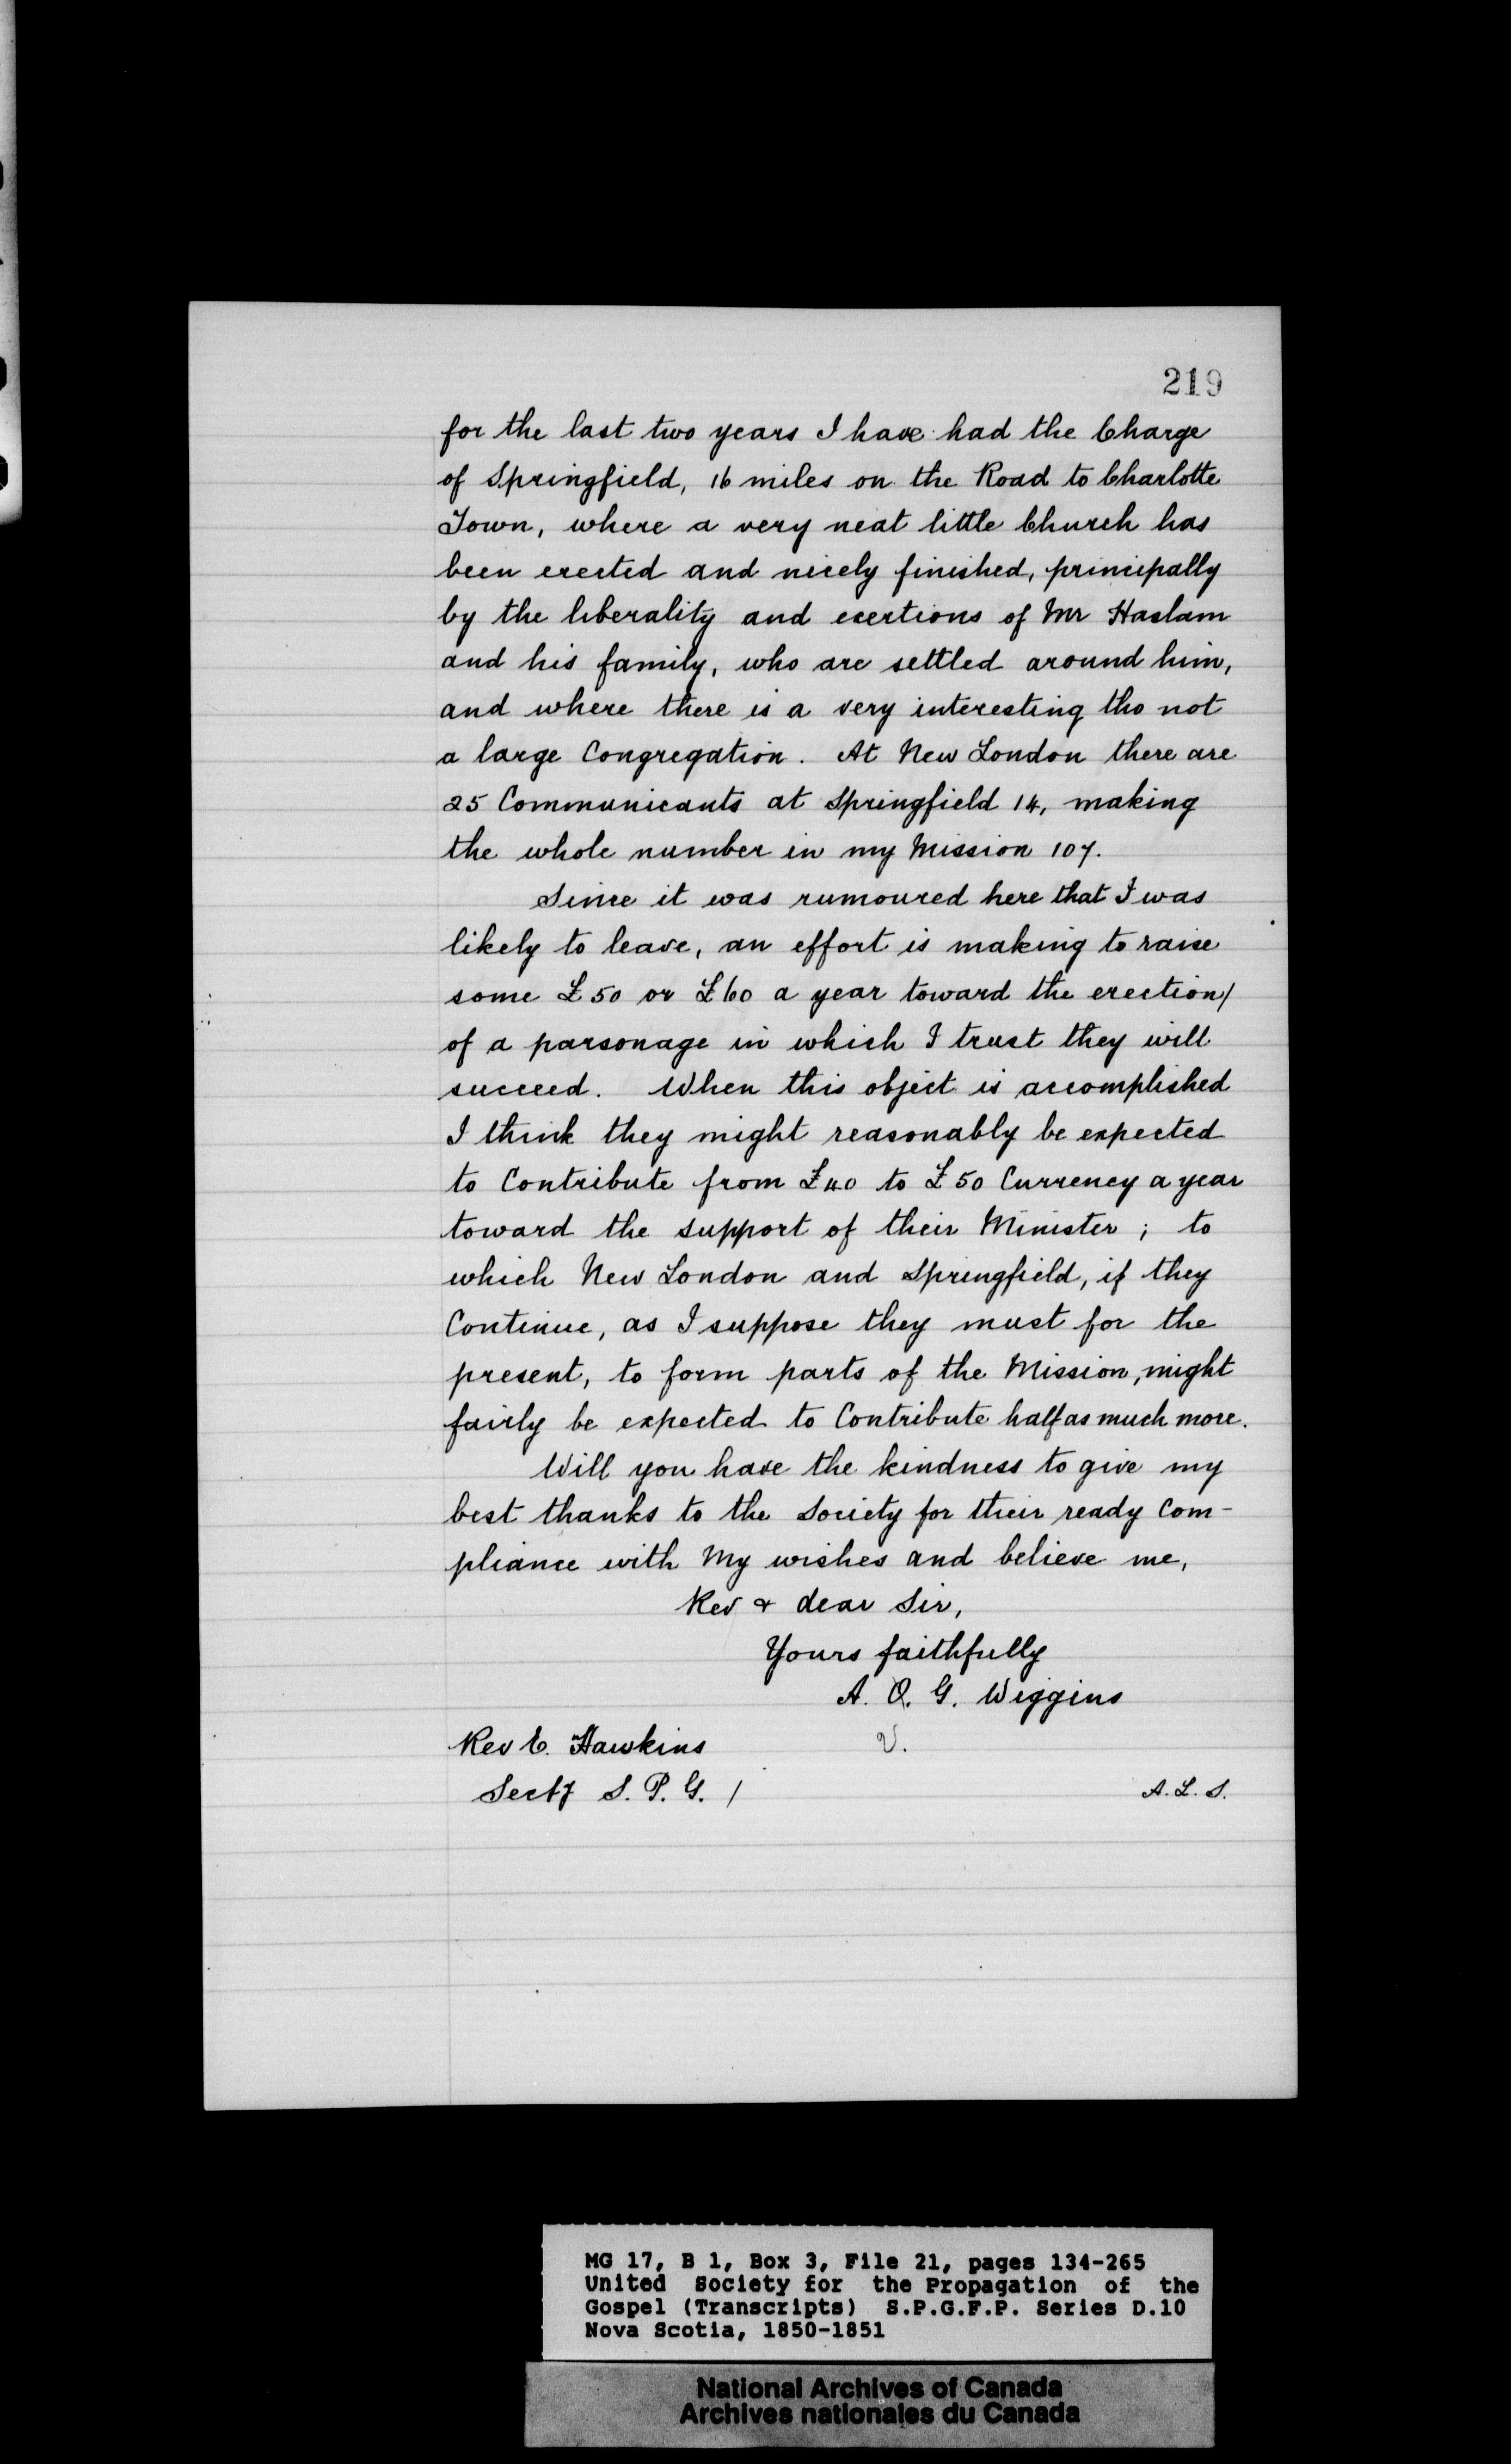 219
for the last two years I have had the Charge
of Springfield, 16 miles on the Road to Charlotte
Town, where a very neat little Church has
been erected and nicely finished, principally
by the liberality and exertions of Mr Haslam
and his family, who are settled around him,
and where there is a very interesting tho not
a large Congregation. At New London there are
25 Communicants at Springfield 14, making
the whole number in my Mission 107.
Since it was rumoured here that I was
likely to leave, an effort is making to raise
some £50 or £60 a year toward the erection/
of a parsonage in which I trust they will
succeed. When this object is accomplished
I think they might reasonably be expected
to Contribute from £40 to £50 Currency a year
toward the support of their Minister; to
which New London and Springfield, if they
Continue, as I suppose they must for the
present, to form parts of the Mission, might
fairly be expected to Contribute half as much more.
Will you have the kindness to give my
best thanks to the Society for their ready Com-
pliance with My wishes and believe me,
Rev & dear Sir,
Yours faithfully
A. O. G. Wiggins
V.
Rev E. Hawkins
Secty S. P. G. /
A. L. S.
MG 17, B 1, Box 3, File 21, pages 134-265
United Society for the Propagation of the
Gospel (Transcripts) S.P.G.F.P. Series D.10
Nova Scotia, 1850-1851
National Archives of Canada
Archives nationales du Canada